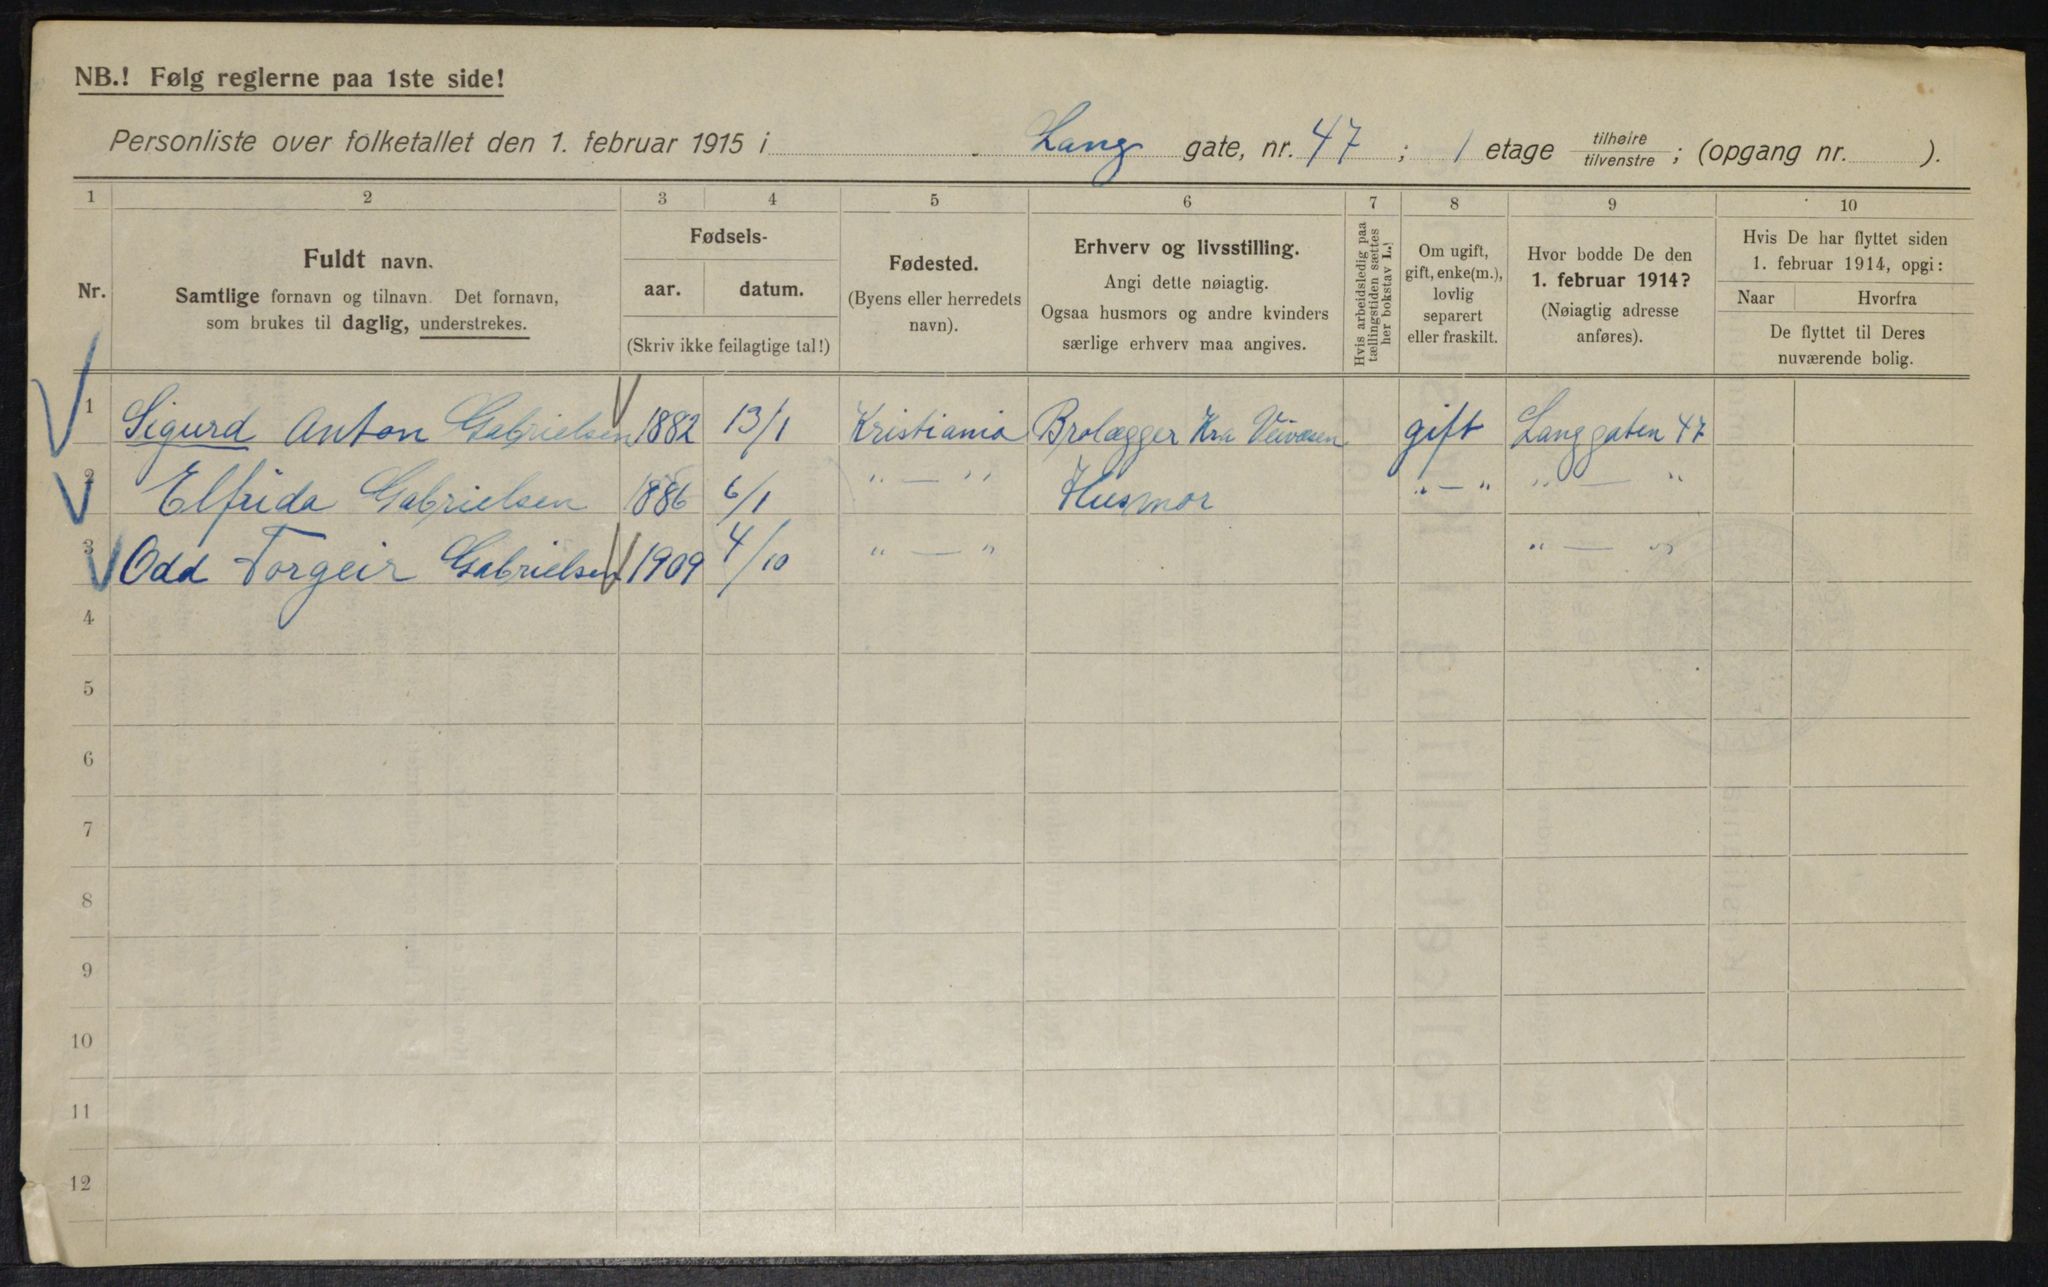 NB.! Følg reglerne paa 1ste side!
Personliste over folketallet den 1. februar 1915 i Lang gate, nr. 47 ; 1 etage tilhøire / tilvenstre ; (opgang nr. ).
1 2 3 4 5 6 7 8 9 10
Nr.
Fuldt navn.
Samtlige fornavn og tilnavn. Det fornavn,
som brukes til daglig, understrekes.
Fødsels-
aar. datum.
(Skriv ikke feilagtige tal!)
Fødested.
(Byens eller herredets
navn).
Erhverv og livsstilling.
Angi dette nøiagtig.
Ogsaa husmors og andre kvinders
særlige erhverv maa angives.
Hvis arbeidsledig paa
tællingstiden sættes
her bokstav L.!
Om ugift,
gift, enke(m.),
lovlig
separert
eller fraskilt.
Hvor bodde De den
1. februar 1914?
(Nøiagtig adresse
anføres).
Hvis De har flyttet siden
1. februar 1914, opgi:
Naar Hvorfra
De flyttet til Deres
nuværende bolig.
1 Sigurd Anton Gabrielsen 1882 13/1 Kristiania Brolægger Kra Veivæsen gift Langgaten 47
2 Elfrida Gabrielsen 1886 6/1 " — " Husmor " — " " — "
3 Odd Torgeir Gabrielsen 1909 4/10 " — " " — "
4
5
6
7
8
9
10
11
12